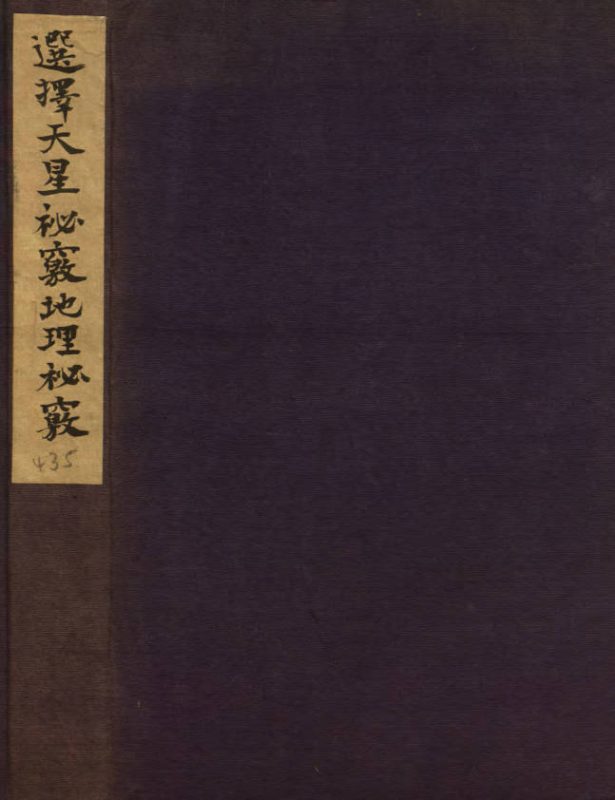 選擇天星祕竅地理祕竅
435